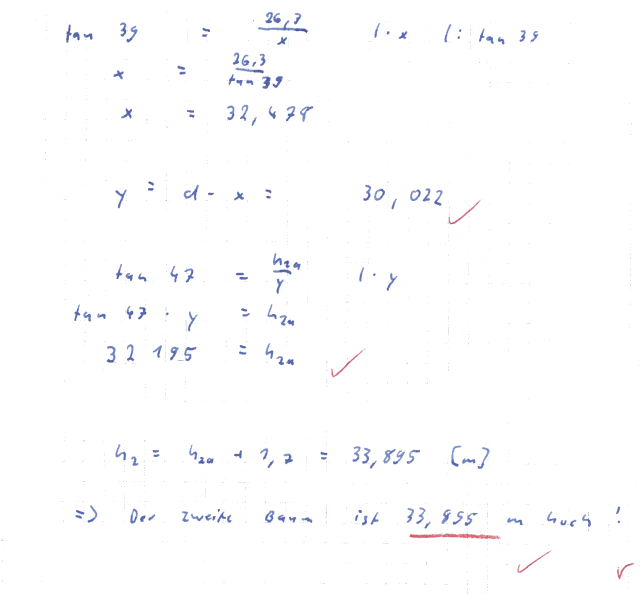 tan 39 = 26,3/x |· x |: tan 39
x = 26,3/tan 39
x = 32,478
y = d - x = 30,022
tan 47 = h2a/y |· y
tan 47 · y = h2a
32 195 = h2a
h2 = h2a + 1,7 = 33,895 [m]
=> Der zweite Baum ist 33,895 m hoch !